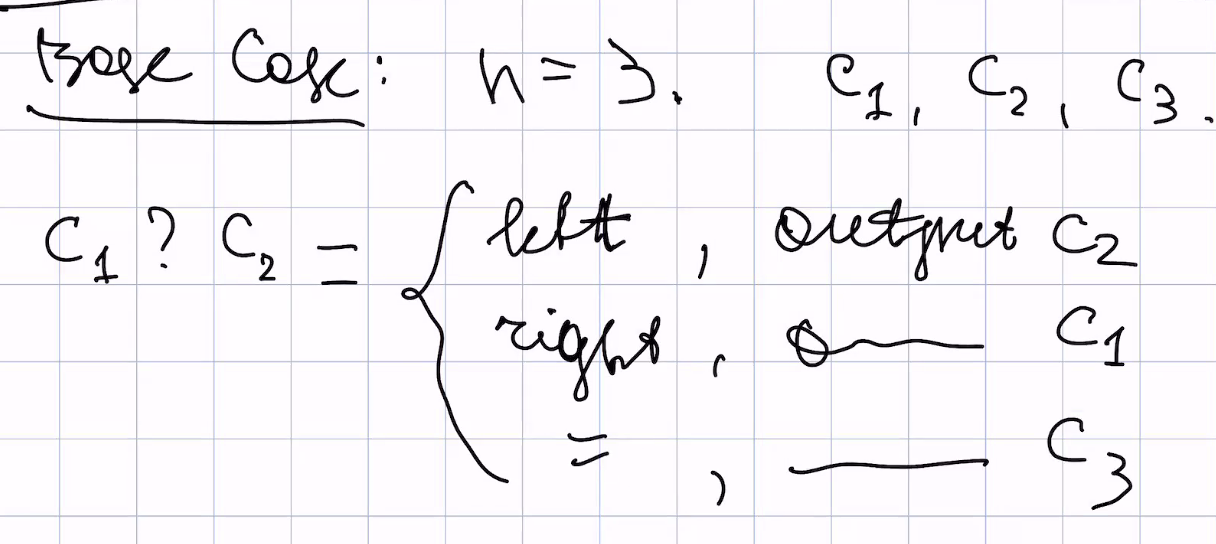 Base Case: n = 3. C1, C2, C3.
C1 ? C2 = { left, output C2
right, o—— C1
=, —— C3